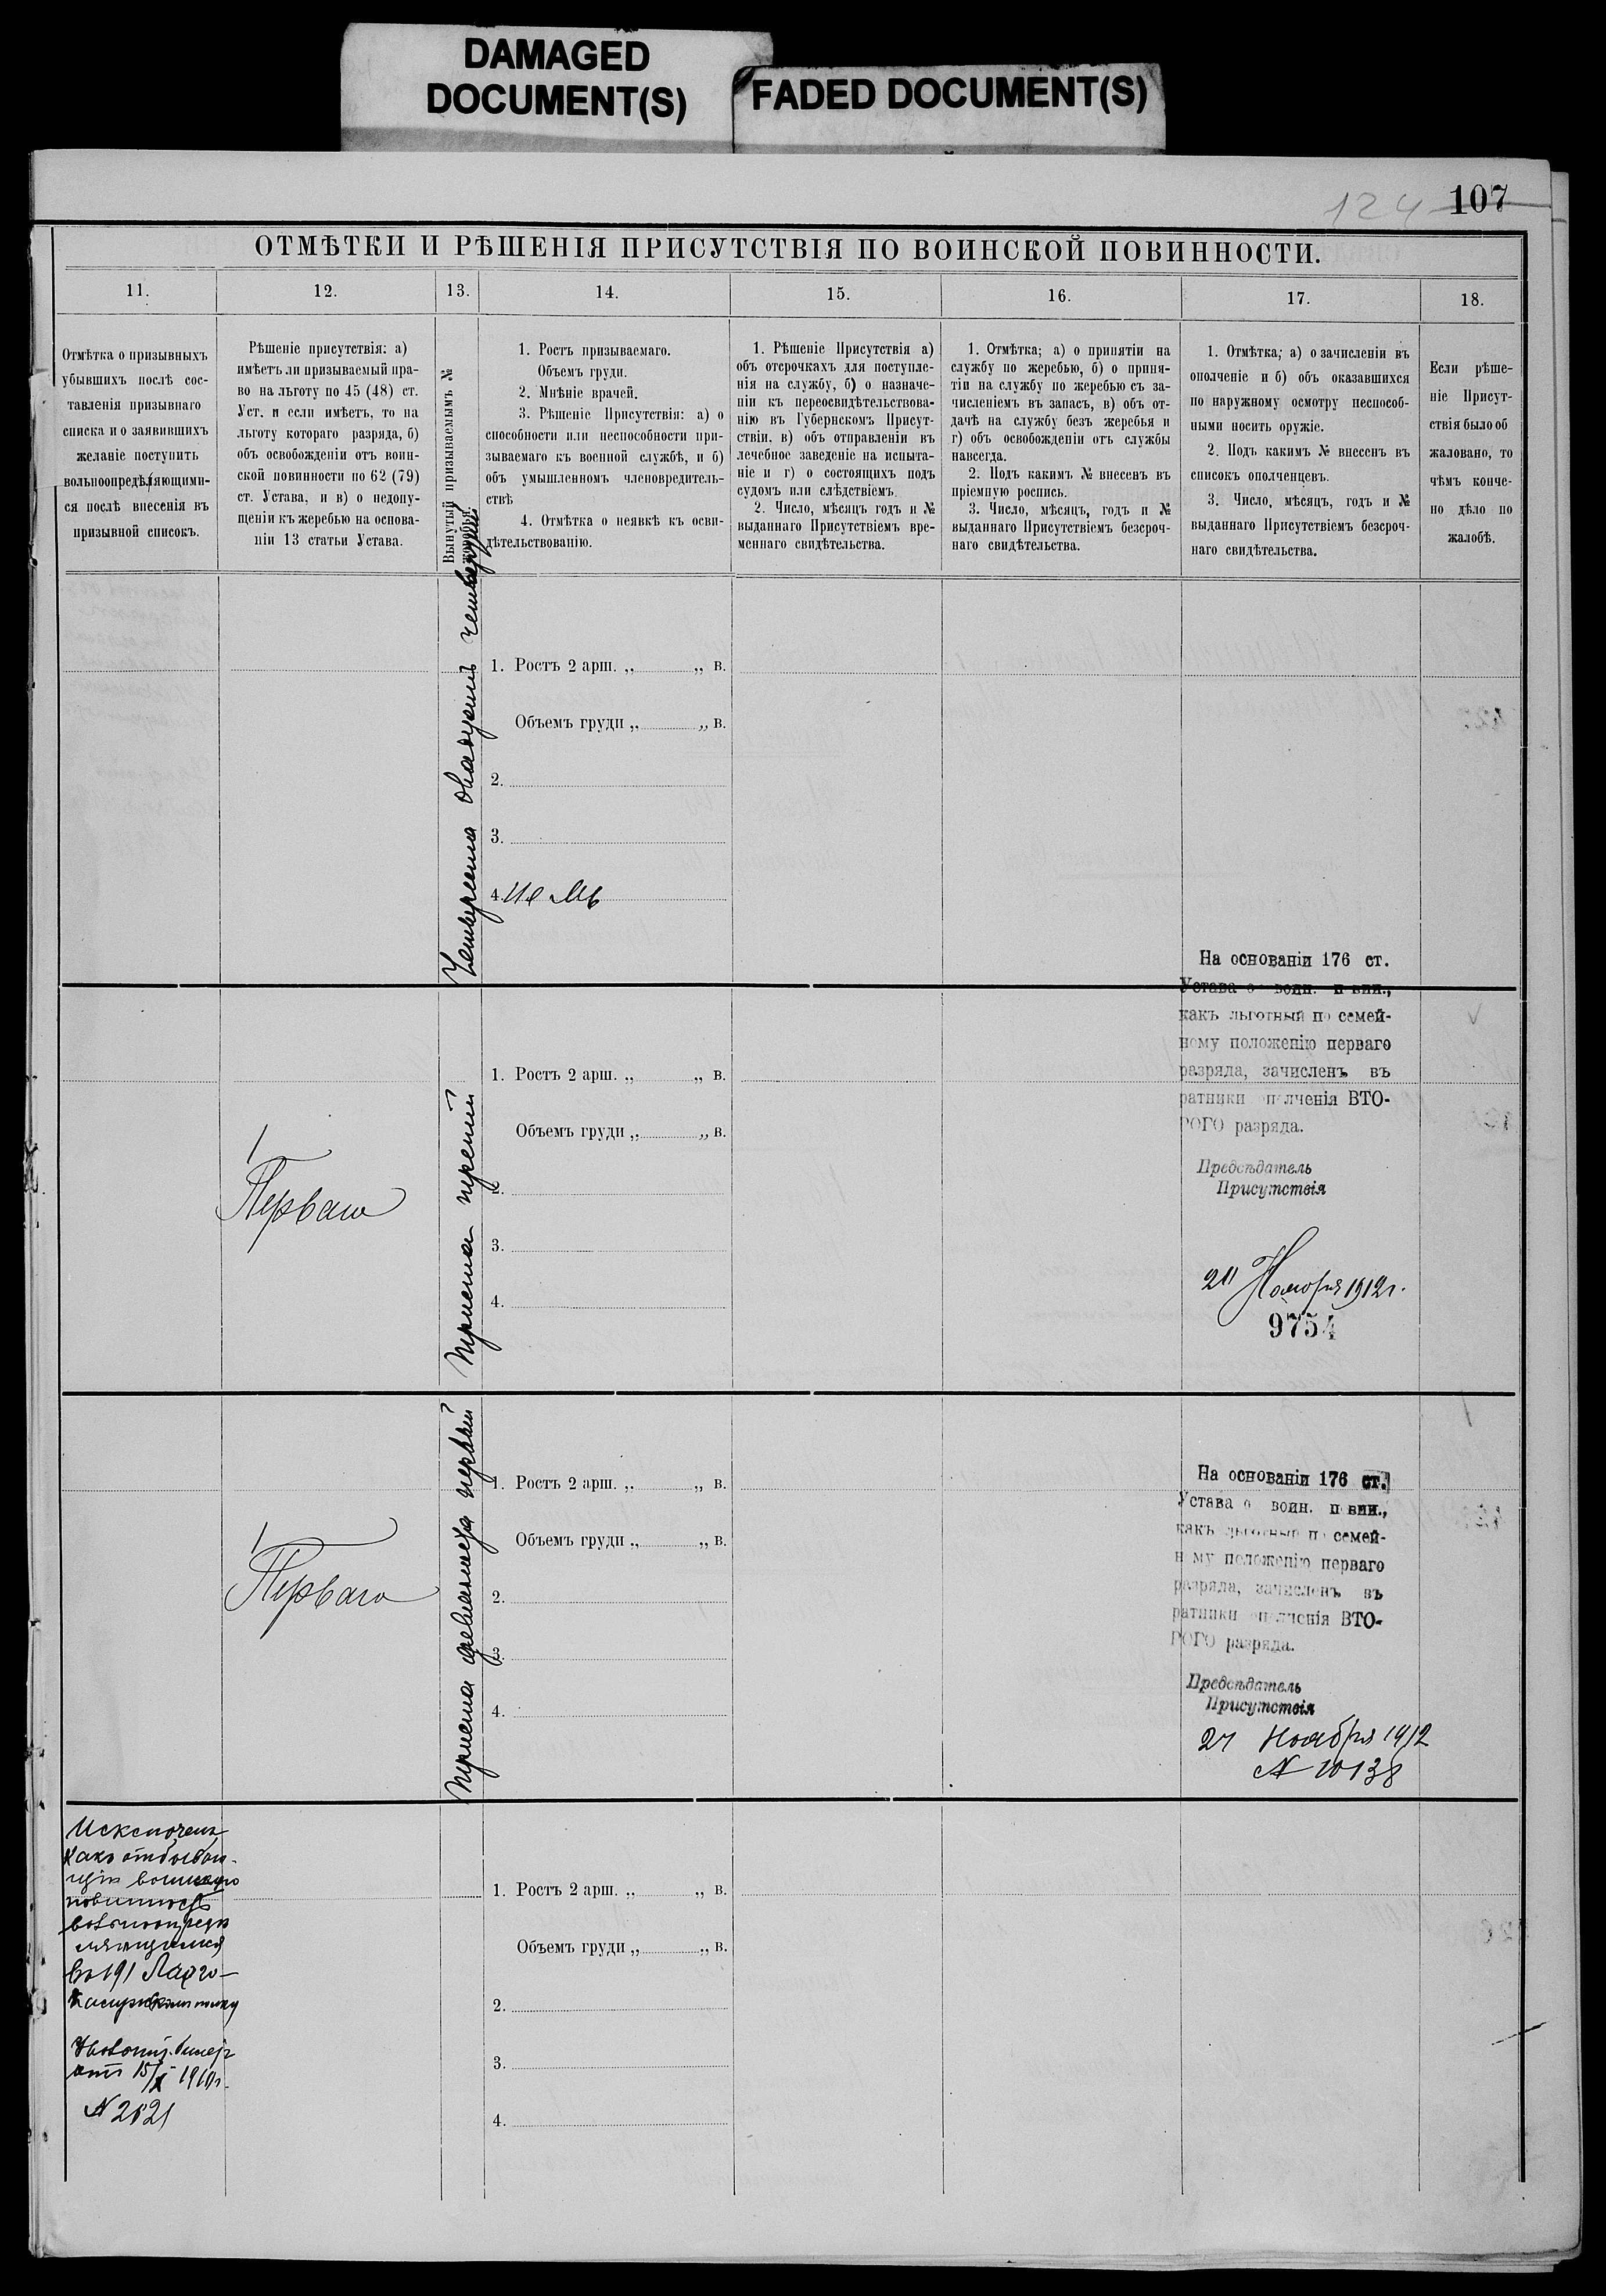 DAMAGED
DOCUMENT(S)
FADED DOCUMENT(S)
124 107
ОТМѢТКИ И РѢШЕНІЯ ПРИСУТСТВІЯ ПО ВОИНСКОЙ ПОВИННОСТИ.
11.
12.
13.
14.
15.
16.
17.
18.
Отмѣтка о призывныхъ
убывшихъ послѣ сос-
тавленія призывнаго
списка и о заявившихъ
желаніе поступить
вольноопредѣляющими-
ся послѣ внесенія въ
призывной списокъ.
Рѣшеніе присутствія: а)
имѣетъ ли призываемый пра-
во на льготу по 45 (48) ст.
Уст. и если имѣетъ, то на
льготу котораго разряда, б)
объ освобожденіи отъ воин-
ской повинности по 62 (79)
ст. Устава, и в) о недопу-
щеніи къ жеребью на основа-
ніи 13 статьи Устава.
Вынутый призываемымъ №
жеребья.
1. Ростъ призываемаго.
Объемъ груди.
2. Мнѣніе врачей.
3. Рѣшеніе Присутствія: а) о
способности или неспособности при-
зываемаго къ военной службѣ, и б)
объ умышленномъ членовредитель-
ствѣ
4. Отмѣтка о неявкѣ къ осви-
дѣтельствованію.
1. Рѣшеніе Присутствія а)
объ отсрочкахъ для поступле-
нія на службу, б) о назначе-
ніи къ переосвидѣтельствова-
нію въ Губернскомъ Присут-
ствіи. в) объ отправленіи въ
лечебное заведеніе на испыта-
ніе и г) о состоящихъ подъ
судомъ или слѣдствіемъ.
2. Число, мѣсяцъ годъ и №
выданнаго Присутствіемъ вре-
меннаго свидѣтельства.
1. Отмѣтка; а) о принятіи на
службу по жеребью, б) о приня-
тіи на службу по жеребью съ за-
численіемъ въ запасъ, в) объ от-
дачѣ на службу безъ жеребья и
г) объ освобожденіи отъ службы
навсегда.
2. Подъ какимъ № внесенъ въ
пріемную роспись.
3. Число, мѣсяцъ, годъ и №
выданнаго Присутствіемъ безсроч-
наго свидѣтельства.
1. Отмѣтка; а) о зачисленіи въ
ополченіе и б) объ оказавшихся
по наружному осмотру неспособ-
ными носить оружіе.
2. Подъ какимъ № внесенъ въ
списокъ ополченцевъ.
3. Число, мѣсяцъ, годъ и №
выданнаго Присутствіемъ безсроч-
наго свидѣтельства.
Если рѣше-
ніе Присут-
ствія было об
жаловано, то
чѣмъ конче-
но дѣло по
жалобѣ.
Четыреста двадцать четвертый
1. Ростъ 2 арш. „ „ в.
Объемъ груди „ „ в.
2.
3.
4.
Первага
Триста третій
1. Ростъ 2 арш. „ „ в.
Объемъ груди „ „ в.
2.
3.
4.
На основаніи 176 ст.
Устава о воин. повин.,
какъ льготный по семей-
ному положенію перваго
разряда, зачисленъ въ
ратники ополченія ВТО-
РОГО разряда.
Предсѣдатель
Присутствія
Ноября 1912 г.
9754
Перваго
Триста девяносто первый
1. Ростъ 2 арш. „ „ в.
Объемъ груди „ „ в.
2.
3.
4.
На основаніи 176 ст.
Устава о воин. повин.,
какъ льготный по семей-
ному положенію перваго
разряда, зачисленъ въ
ратники ополченія ВТО-
РОГО разряда.
Предсѣдатель
Присутствія
27 Ноября 1912
№ 10138
Исключенъ
какъ отбываю-
щій воинскую
повинность
вольноопредѣ
ляющимся
въ 191 Ларго-
Кагульскомъ полку
отъ 15/X 1910 г.
№ 2621
1. Ростъ 2 арш. „ „ в.
Объемъ груди „ „ в.
2.
3.
4.